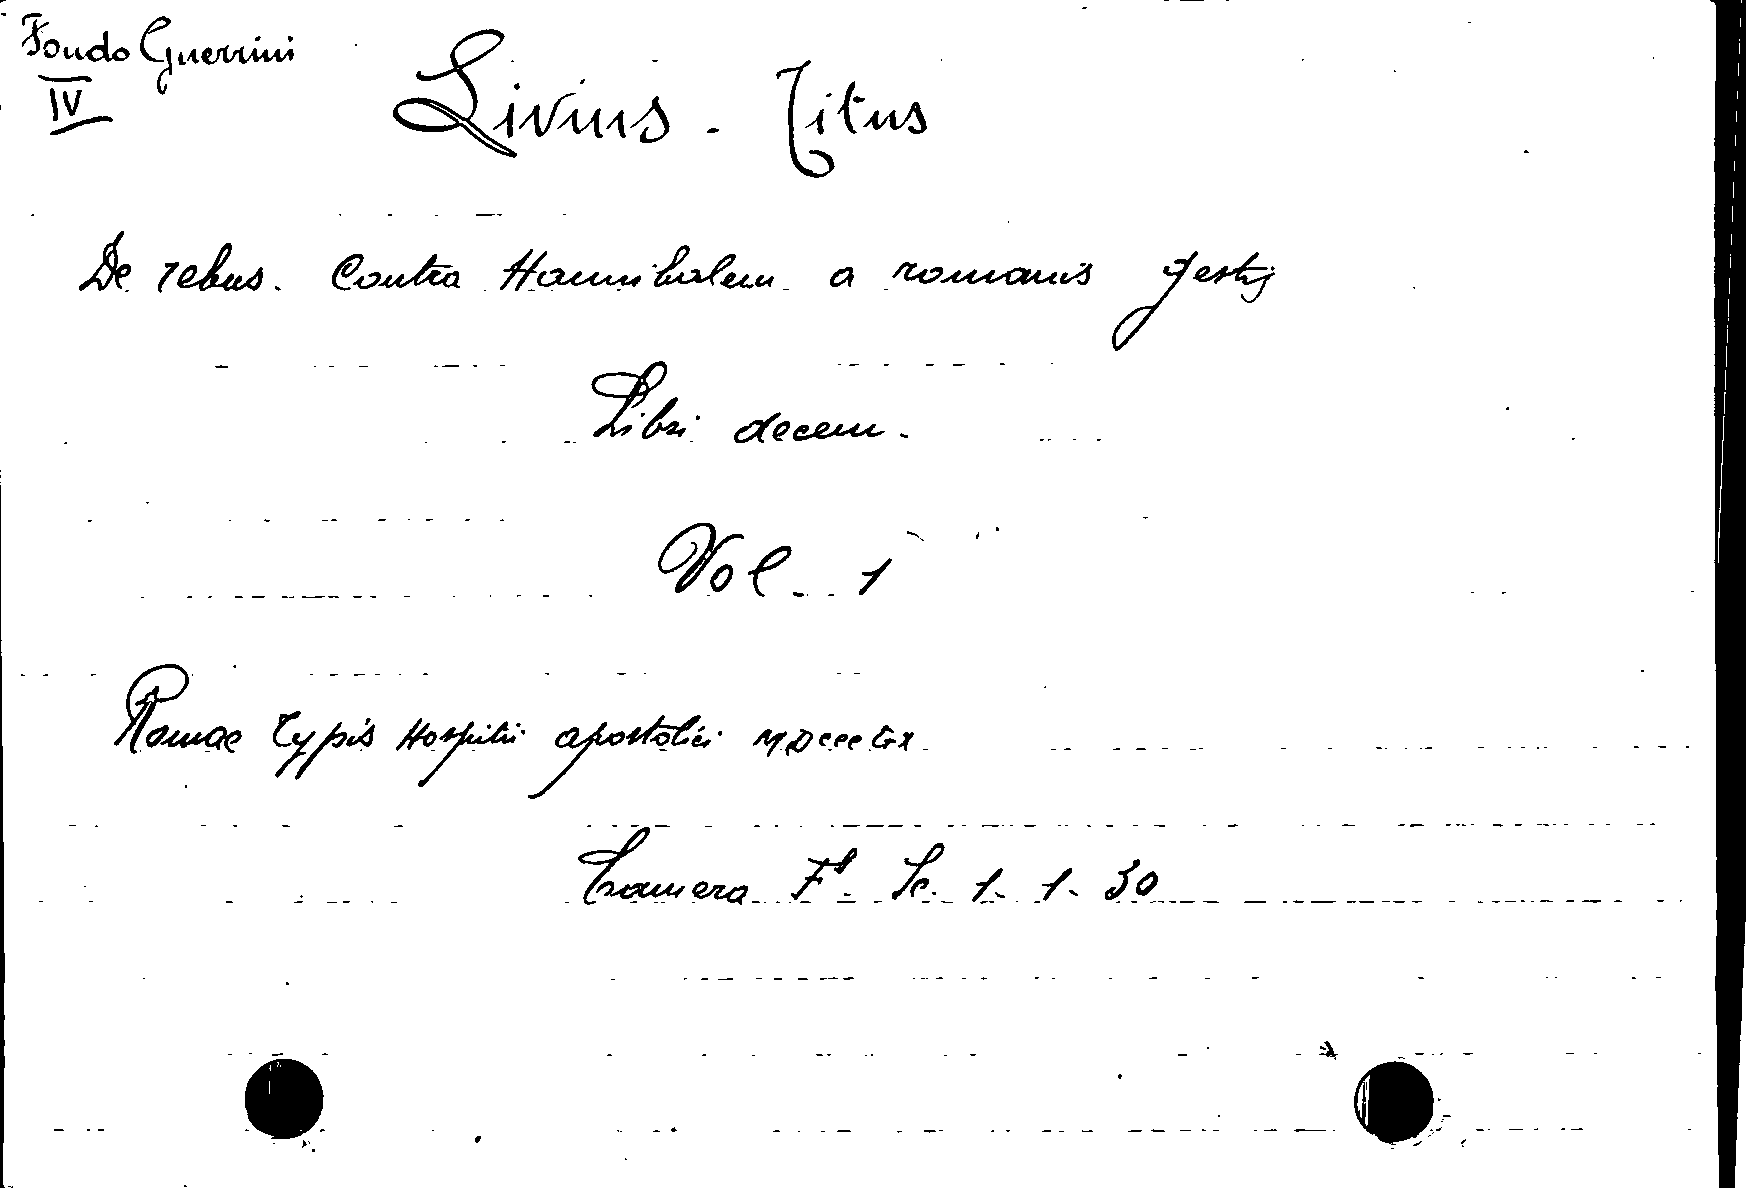 Fondo Guerrini
IV
Livius - Titus
De rebus. Contra Hannibalem a romanis gestis
Libri decem.
Vol. 1
Romae Typis Hospitii apostolici
Camera Fd. Sc. 1. 1. 30